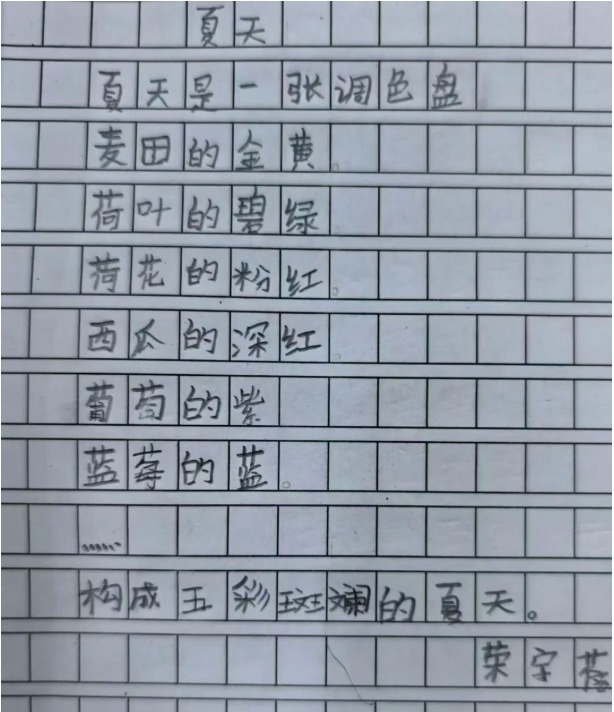 夏天
夏天是一张调色盘
麦田的金黄。
荷叶的碧绿
荷花的粉红。
西瓜的深红
葡萄的紫
蓝莓的蓝。
……
构成五彩斑斓的夏天。
荣宇